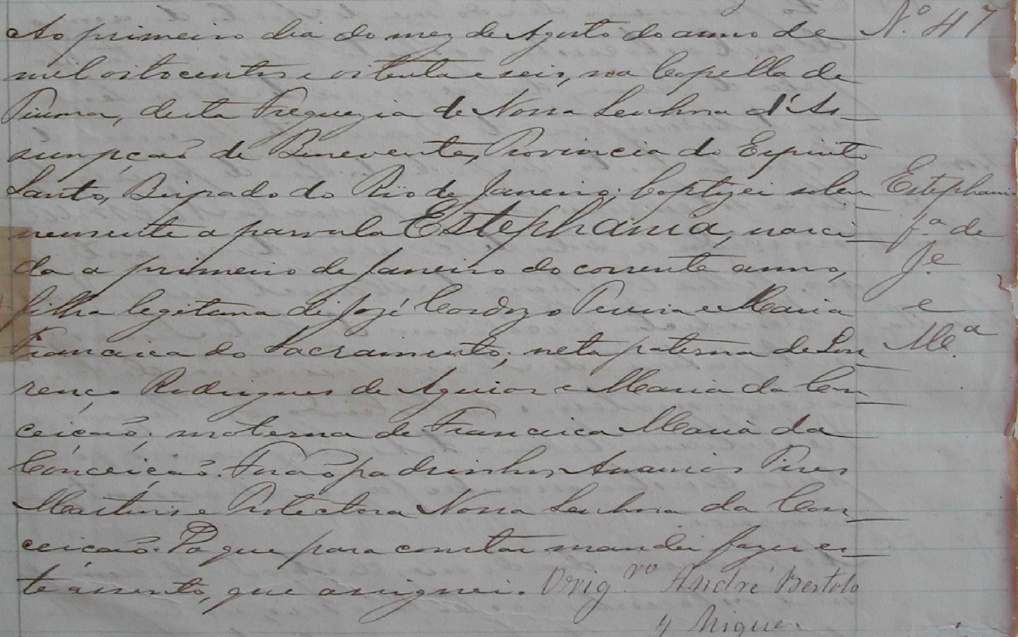 Ao primeiro dia do mez de Agosto do anno de
mil oitocentos e oitenta e seis, na Capella de
Piuma, desta Freguezia de Nossa Senhora d'As-
sumpçaõ de Benevente, Provincia do Espirito
Santo, Bispado do Rio de Janeiro: baptizei solem
nemente a parvula Estephania, nasci-
da a primeiro de Janeiro do corrente anno,
filha legitima de José Cardozo Pereira e Maria
Francisca do Sacramento; neta paterna de Lou
renço Rodrigues de Aguiar e Maria da Con-
ceiçaõ; materna de Francisca Maria da
Conceiçaõ. Foraõ padrinhos Ananias Pires
Martins e Protectora Nossa Senhora da Con-
ceiçaõ. Do que para constar mandei fazer es-
te assento, que assignei. Orig.ro André Bertolo
Nº 47
Estephania
f.ª de
J.e
e
M.ª